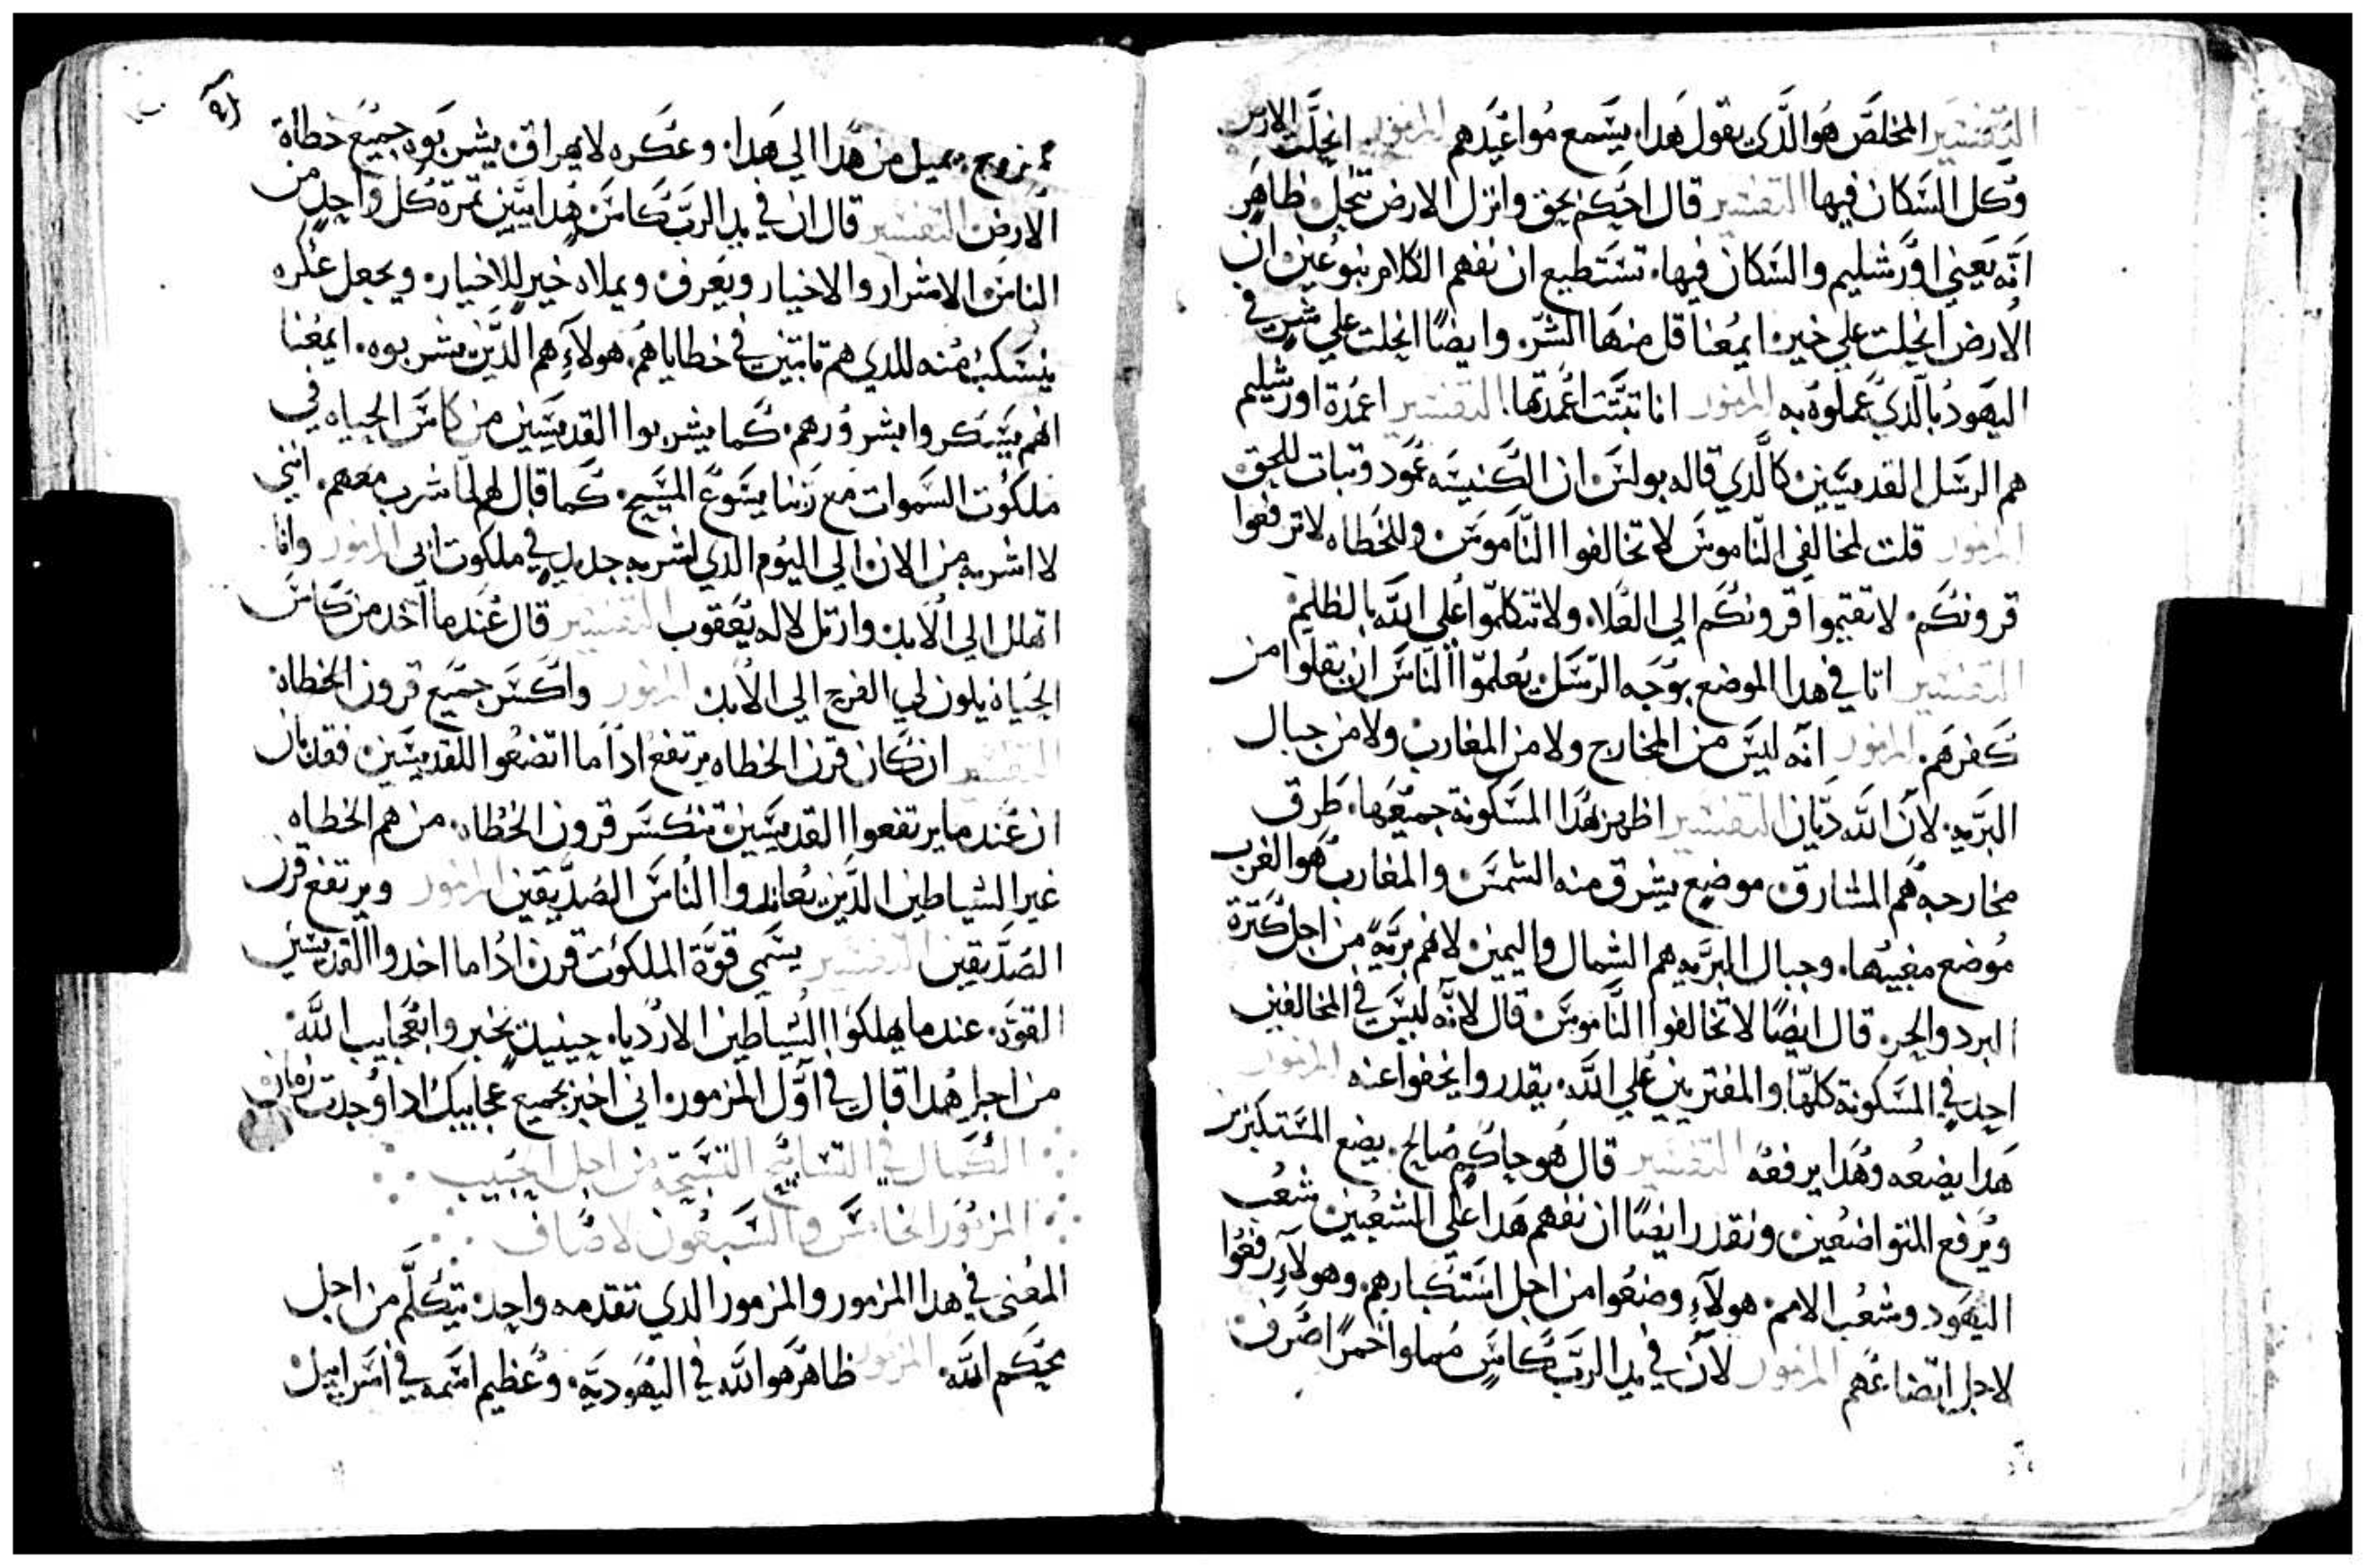 التفسير المخلص هو الذي يقول هدا يسمع مواعيدهم المزمور انحلت الارض
وكل السكان فيها التفسير قال احكم بحق وانزل الارض تنحل ظاهر
انه يعني اورشليم والسكان فيها تستطيع ان نفهم الكلام بنوعين ان
الارض انحلت علي خير ايمعنا قل منها الشر وايضًا انحلت علي شر في
اليهود بالذي عملوه به المزمور انا تبتت اعمدتها التفسير اعمدة اورشليم
هم الرسل القديسين كالذي قاله بولس ان الكنيسه عمود وتبات للحق
المزمور قلت لمخالفي الناموس لا تخالفوا الناموس وللخطاه لا ترفعوا
قرونكم لا تقيموا قرونكم الي العلاء ولا تتكلموا علي الله بالظلم
التفسير انا في هدا الموضع بوجه الرسل يعلموا الناس ان يقلوا من
كفرهم المزمور انه ليس من المخارج ولا من المغارب ولا من جبال
البريه لان الله ديان التفسير اظهر هدا المسكونة جميعها طرق
مخارجه هم المشارق موضع يشرق منه الشمس والمغارب هو الغرب
موضع مغيبها وجبال البريه هم الشمال واليمين لانهم بريه من اجل كترة
البرد والحر قال ايضًا لا تخالفوا الناموس قال لانه ليس في المخالفين
احد في المسكونة كلها والمفتريين علي الله يقدروا يخفوا عنه المزمور
هدا يضعه وهدا يرفعه التفسير قال هو حاكم صالح يضع المستكبرين
ويرفع المتواضعين ونقدر ايضًا ان نفهم هدا علي الشعبين شعب
اليهود وشعب الامم هولاء وضعوا من اجل استكبارهم وهولاء رفعوا
لاجل اتضاعهم المزمور لان في يد الرب كاس مماوا خمرًا صرف
ممزوج يميل من هدا الي هدا وعكره لا يهراق يشربوه جميع خطاة
الارض التفسير قال ان في يد الرب كاس هدا يبين تمرة كل واحد من
الناس الاشرار والاخيار ويغرف ويملاه خير للاخيار ويجعل عكره
ينسكب منه للدي هم تابتين في خطاياهم هولاء هم الدين يشربوه ايمعنا
انهم يسكروا بشرورهم كما يشربوا القديسين من كاس الحياه في
ملكوت السموات مع ربنا يسوع المسيح كما قال لهم لما شرب معهم انني
لا اشربه من الان الي اليوم الدي اشربه جديد في ملكوت ابي المزمور وانا
اتهلل الي الابد وارتل لاله يعقوب التفسير قال عندما آخد من كاس
الحياه يكون لي الفرح الي الابد المزمور واكسر جميع قرون الخطاه
التفسير ان كان قرن الخطاه يرتفع اداً ما اتضعوا القديسين فقد بان
ان عندما يرتفعوا القديسين تنكسر قرون الخطاه من هم الخطاه
غير الشياطين الدين يعاندوا الناس الصديقين المزمور ويرتفع قرن
الصديقين التفسير يسمي قوة الملكوت قرن ادا ما اخدوا القديسين
القوه عندما يهلكوا الشياطين الاردياء حينيد يخبروا بعجايب الله
من اجل هدا قال في اول المزمور اني اخبر بجميع عجايبك ادا وجدت زمان
الكمال في التسابيح التسبحة من اجل الحبيب
المزمور الخامس والسبعون لاصاف
المعنى في هدا المزمور والمزمور الدي تقدمه واحد يتكلم من اجل
حكم الله المزمور ظاهر هو الله في اليهوديه وعظيم اسمه في اسراييل